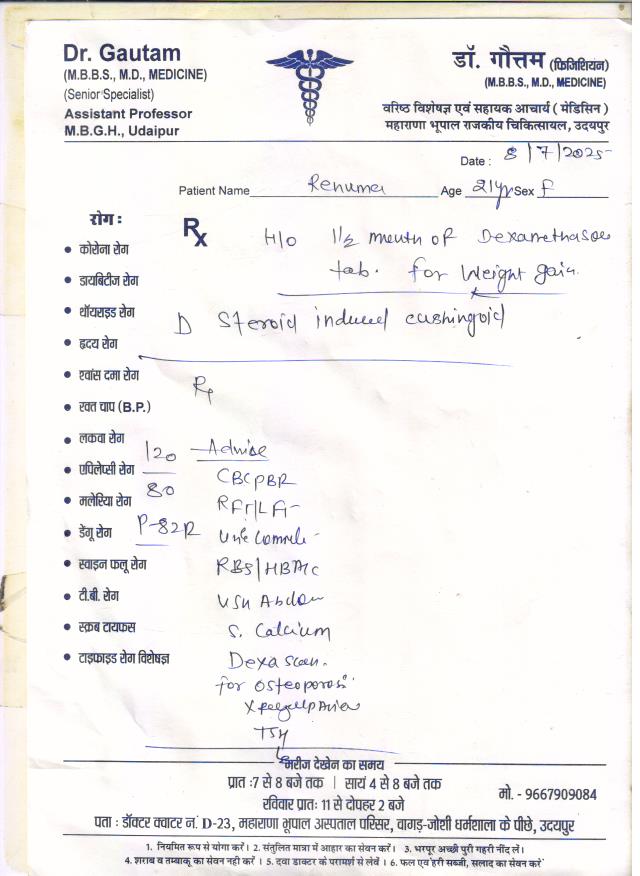 Dr. Gautam
(M.B.B.S., M.D., MEDICINE)
(Senior Specialist)
Assistant Professor
M.B.G.H., Udaipur
डॉ. गौत्तम (फिजिशियन)
(M.B.B.S., M.D., MEDICINE)
वरिष्ठ विशेषज्ञ एवं सहायक आचार्य ( मेडिसिन )
महाराणा भूपाल राजकीय चिकित्सायल, उदयपुर
Date : 8/7/2025
Patient Name Renuma Age 21yr Sex F
रोग :
Rx H/o 1 1/2 month of Dexamethasoe
tab. for Weight gain.
D Steroid induced cushingoid
Rx
• कोरोना रोग
• डायबिटीज रोग
• थॉयराइड रोग
• हृदय रोग
• श्वांस दमा रोग
• रक्त चाप (B.P.)
• लकवा रोग
• एपिलेप्सी रोग
• मलेरिया रोग
• डेंगू रोग
• स्वाइन फलू रोग
• टी.बी. रोग
• स्क्रब टायफस
• टाइफाइड रोग विशेषज्ञ
120
80
P-82R
Advise
CBC PBR
RFT/LFT
RBS/HBA1c
USG Abdom
S. Calcium
Dexa scan.
for osteoporosi
TSH
मरीज देखेन का समय
प्रात :7 से 8 बजे तक | सायं 4 से 8 बजे तक
रविवार प्रातः 11 से दोपहर 2 बजे
मो. - 9667909084
पता : डॉक्टर क्वाटर नं. D-23, महाराणा भूपाल अस्पताल परिसर, वागड़-जोशी धर्मशाला के पीछे, उदयपुर
1. नियमित रूप से योगा करें। 2. संतुलित मात्रा में आहार का सेवन करें। 3. भरपूर अच्छी पुरी गहरी नींद लें।
4. शराब व तम्बाकू का सेवन नही करें । 5. दवा डाक्टर के परामर्श से लेवें । 6. फल एवं हरी सब्जी, सलाद का सेवन करे